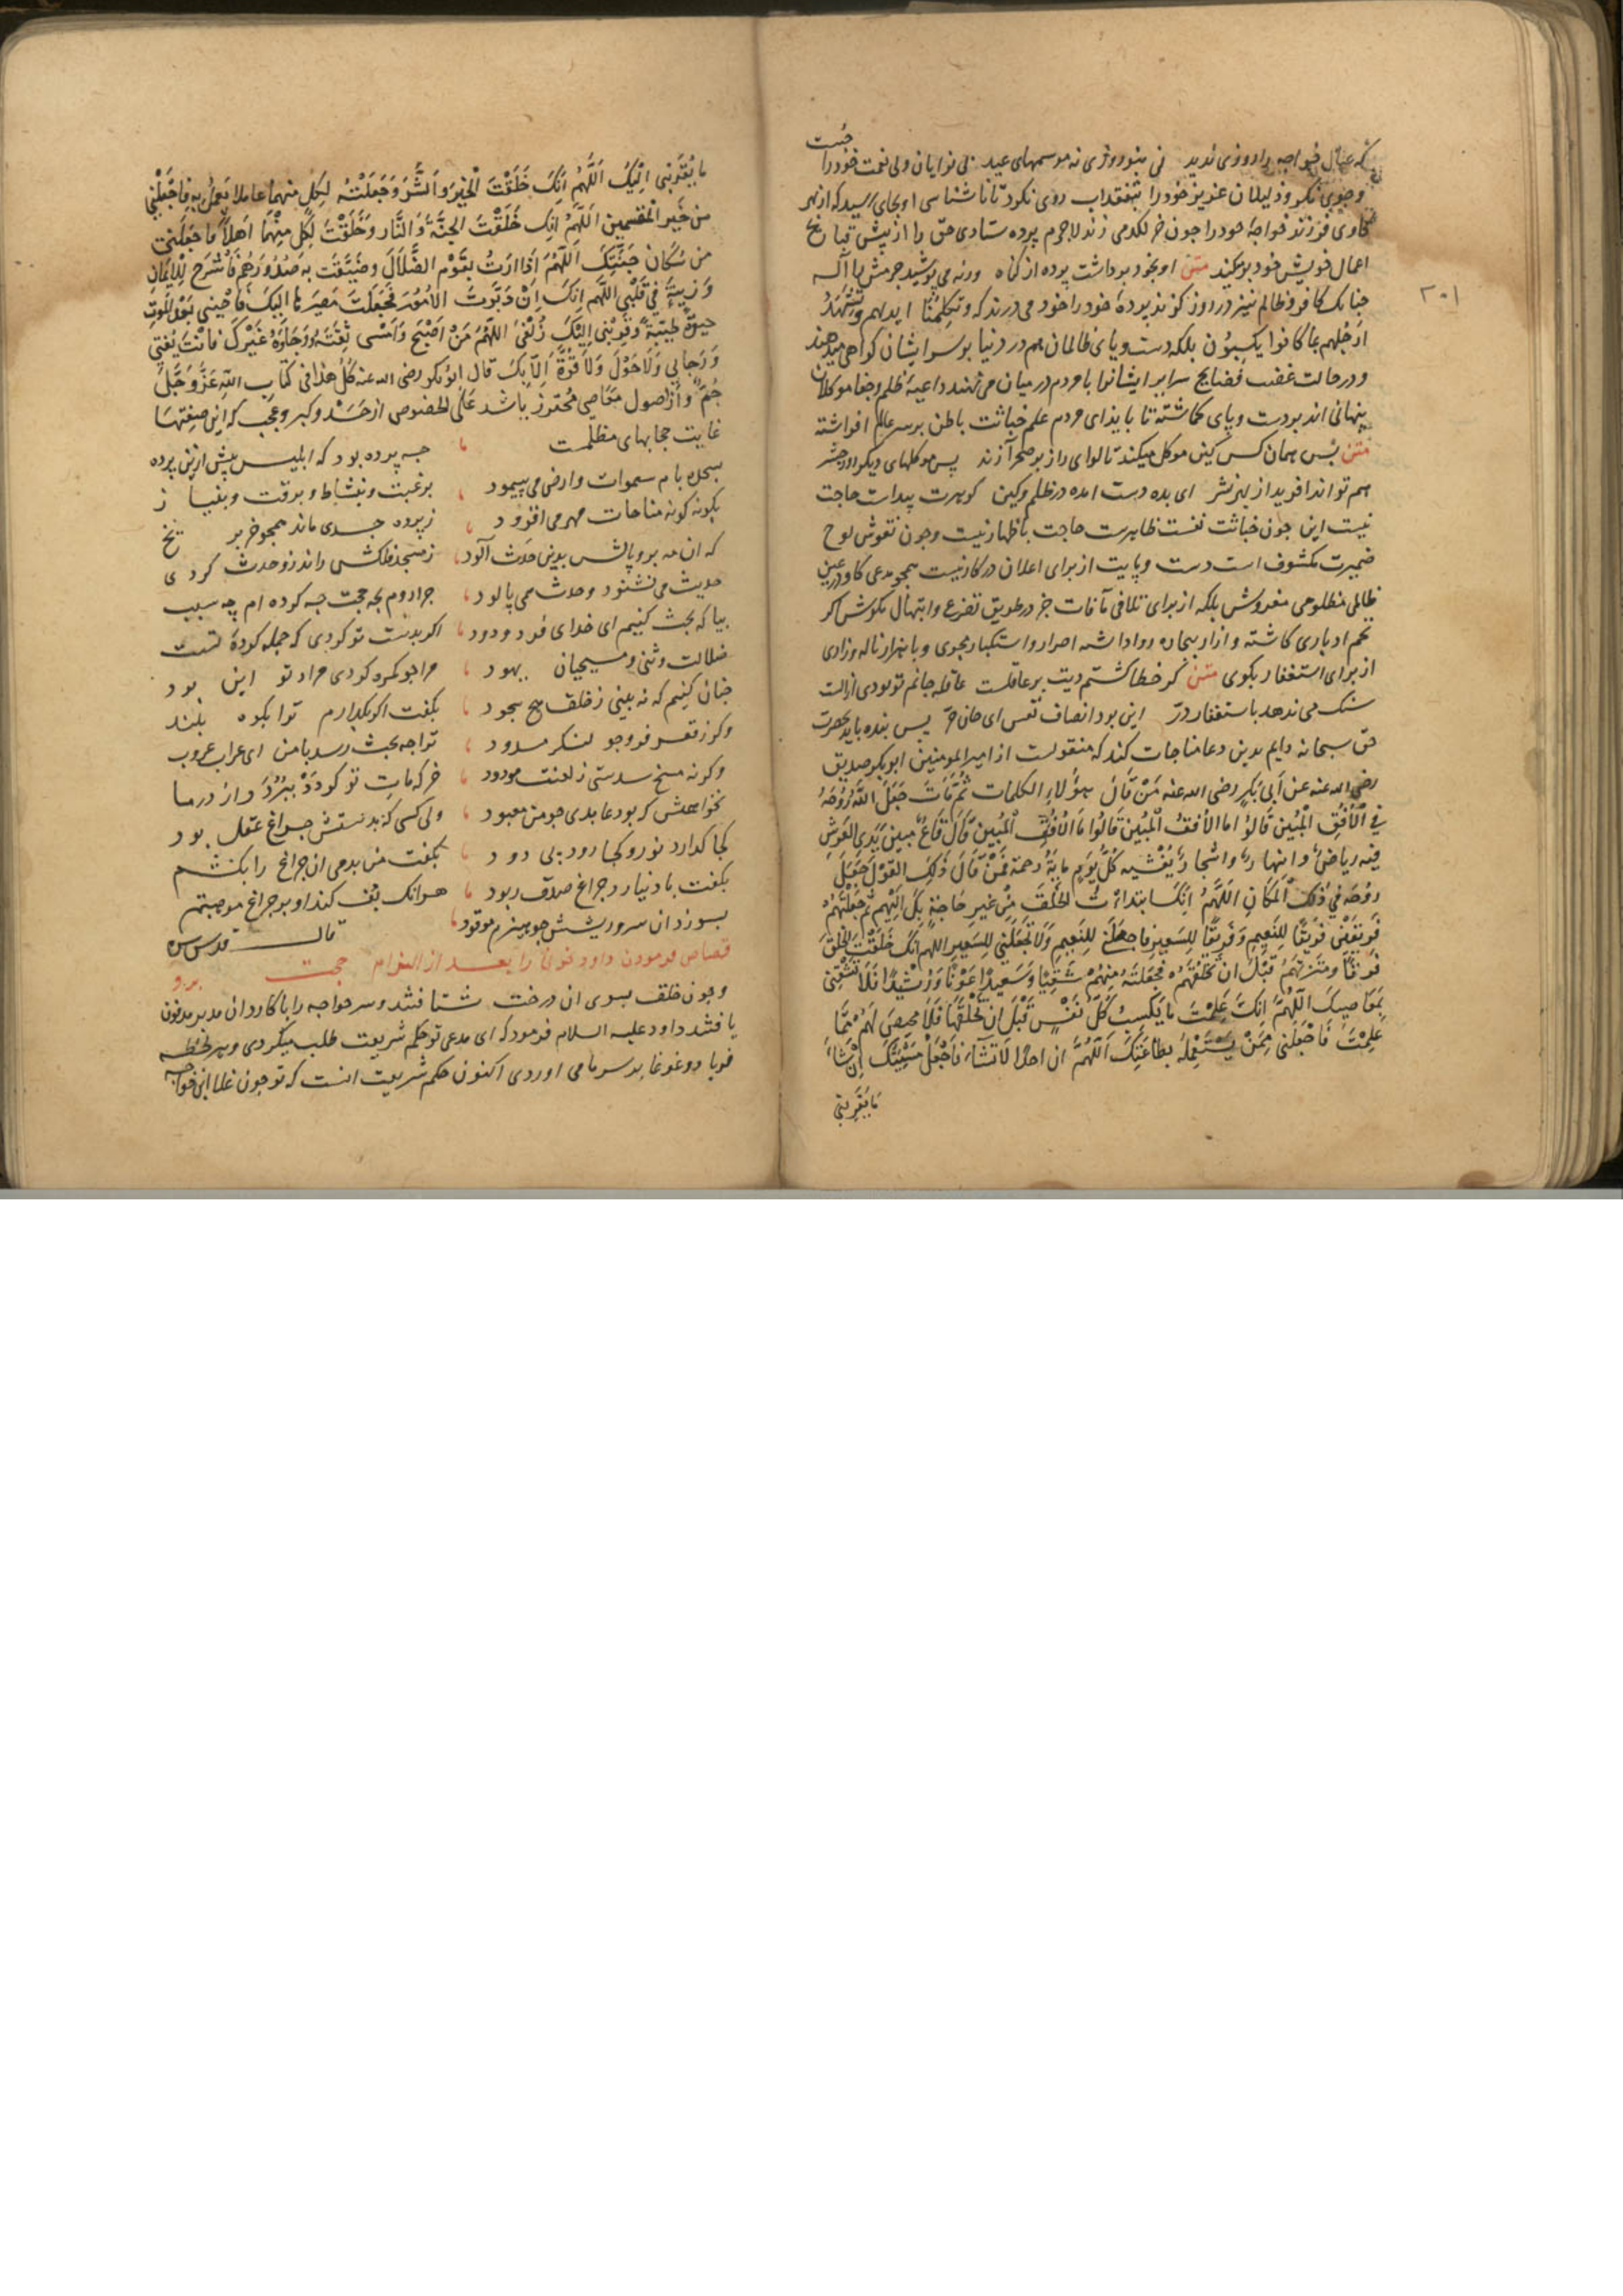 که عیال خواجه را روزی ندید نی بنوروزی نه موسمهای عید بی نوایان ولی نعمت خود را جست
و جوی نکرد و ذلیلان عزیز خود را تفقداب روی نکرد تا ناشناسی او بجای رسید که از بهر
گاوی فرزند خواجهٔ خود را چون خر لکد می زند لاجرم پرده ستاری حق را از پیش قبایح
اعمال خویش خود برمیکند متن او بخود برداشت پرده از کناه ورنه می پوشید جرمش را آله
جنانک کافر و ظالم نیز در روز کزند پردهٔ خود را خود می درند که وتکلمنا ایدیهم وتشهد
ارجلهم بما کانوا یکسبون بلکه دست و پای ظالمان هم در دنیا بر سر ایشان کواهی میدهند
و در حالت غضب فضایح سرایر ایشانرا با مردم در میان می نهند داعیهٔ ظلم و جفا موکلان
پنهانی اند بر دست و پای کماشته تا بایذای مردم علم خباثت باطن بر سر عالم افراشته
متن پس همان کس کین موکل میکند تا لوای راز بر صحرا زند پس موکلهای دیکر روز حشر
هم تواند افرید از بهر نشر ای بده دست امده در ظلم و کین کوهرت پیداست حاجت
نیست این چون خباثت نفست ظاهرست حاجت باظهار نیست و چون نقوش لوح
ضمیرت مکشوف است دست و پایت از برای اعلان در کار نیست همجو مدعی کاو در عین
ظالمی مظلومی مفروش بلکه از برای تلافی مافات جز در طریق تضرع و ابتهال مکوش اکر
تخم ادباری کاشته و ازار بیچاره روا داشته اصرار و استکبار مجوی و با هزار ناله و زاری
از برای استغفار بکوی متن کر خطا کشتم دیت بر عاقلست عاقله جانم تو بودی از الست
سنک می ندهد باستغفار در این بود انصاف نفس ای جان حر پس بنده باید بحضرت
حق سبحانه دایم بدین دعا مناجات کند که منقولست از امیر المومنین ابوبکر صدیق
رضی الله عنه عن ابی بکر رضی الله عنه من قال هؤلاء الکلمات ثم مات جعل الله روحه
فی الافق المبین قالوا اما الافق المبین قالوا ما الافق المبین قال قاع مبین یدی العرش
فیه ریاض وانهار واشجار یغشیه کل یوم مایة رحمة فمن قال ذلک القول جعل
روحه فی ذلک المکان اللهم انک ابتدأت الخلق من غیر حاجة بک الیهم ثم جعلتهم
فریقین فریقا للنعیم وفریقا للسعیر فاجعلنی للنعیم ولا تجعلنی للسعیر اللهم انک خلقت الخلق
فرقا ومیزتهم قبل ان تخلقهم فجعلت منهم شقیا وسعیدا وغویا ورشیدا فلا تشقنی
بمعاصیک اللهم انک علمت ما یکسب کل نفس قبل ان تخلقها فلا محیص لهم مما
علمت فاجعلنی ممن یستعمله بطاعتک اللهم ان احدا لا تشاء فاجعل مشیتک ان شاء
ما یقربنی
۲۰۱
ما یقربنی الیک اللهم انک خلقت الخیر والشر وجعلت لکل منهما عاملا یعمل به فاجعلنی
من خیر القسمین اللهم انک خلقت الجنة والنار وخلقت لکل منهما اهلا فاجعلنی
من سکان جنتک اللهم اذا اردت بقوم الضلال وضیقت به صدورهم فاشرح للایمان
وزینه فی قلبی اللهم انک ان دبرت الامور فجعلت مصیرها الیک فاحینی بعد الموت
حیوة طیبة وقربنی الیک زلفی اللهم من اصبح وامسی ثقته ورجاؤه غیرک فانت ثقتی
ورجایی ولا حول ولا قوة الا بک قال ابو بکر رضی الله عنه کل هذا فی کتاب الله عز وجل
و از اصول معاصی محترز باشد علی الخصوص از حسد و کبر و عجب که این صفتها
غایت حجابهای مظلمست
چه پرده بود که ابلیس پیش ازین پرده
بسجده بام سموات و ارض می پیمود
برغبت و بنشاط و برقت و بنیاز
بکونه کونه مناجات مهر می افزود
ز پرده حسدی ماند همجو خر بر یخ
که ان همه بر و بالش بدین حدث آلود
ز مسجد فلکش راند رو حدث کردی
حدیث می نشنود و حدث همی پالود
چرا روم بچه حجت چه کرده ام چه سبب
بیا که بحث کنیم ای خدای فرد و دود
اکر بدست تو کردی که جمله کردهٔ تست
ضلالت وثنی و مسیحیان یهود
مرا چو کمره کردی مراد تو این بود
چنان کنیم که نه بینی ز خلق هیچ سجود
بکفت اکر بکذارم ترا بکوه بلند
وکر ز قعر فروجو لنکر مدود
ترا چه بحث رسد با من ای غراب غروب
وکرنه مسخ شدستی ز لعنت مودود
خری که مات تو کردد ببرد از در ما
نخواهمش که بود عابدی چو من معبود
ولی کسی که بدستش چراغ عقل بود
کجا کذارد نور و کجا رود پی دود
بکفت من بدمی ان چراغ را بکشم
بکفت باد نیارد چراغ صدق ربود
هر انک پف کند او بر چراغ موهبتم
بسوزد ان سر و ریشش چو هیزم موقود
قال قدس سره
قصاص فرمودن داود خونی را بعد از الزام حجت برو
و چون خلق بسوی ان درخت شتافتند و سر خواجه را با کارد ان مدبر مدفون
یافتند داود علیه السلام فرمود که ای مدعی تو حکم شریعت طلب میکردی و هر لحظه
فریاد و غوغا بر سر ما می اوردی اکنون حکم شریعت انست که تو چون غلام این خواجه